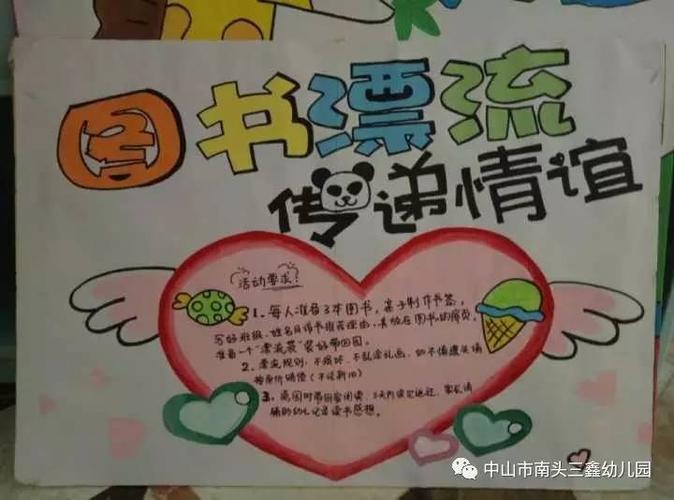 图书漂流
传递情谊
活动要求：
1、每人准备3本图书，亲子制作书签，
写好班级、姓名及推荐理由，夹放在图书的扉页，
准备一个“漂流袋”装好带回园。
2、漂流规则：不损坏、不乱涂乱画，如不慎遗失请
按原价赔偿（不论新旧）
3、离园时带回家阅读，
辅助幼儿记录读书感想。
中山市南头三鑫幼儿园